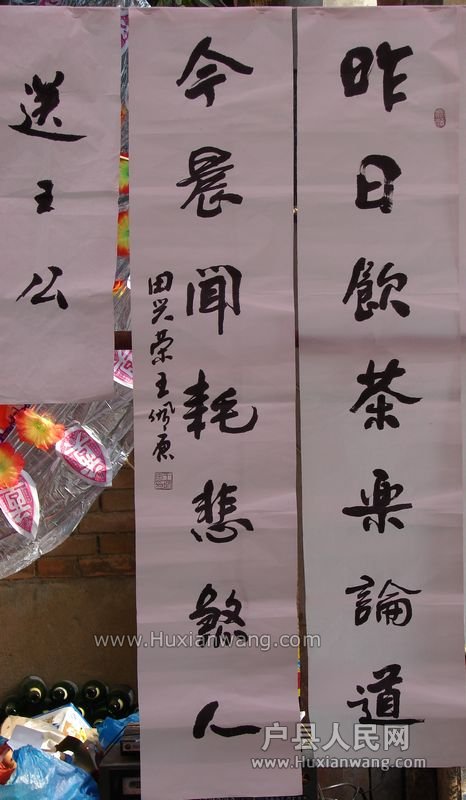 昨日飲茶樂論道
今晨闻耗悲煞人
田兴荣 王佩原
送王公
www.Huxianwang.com
户县人民网
www.Huxianwang.com